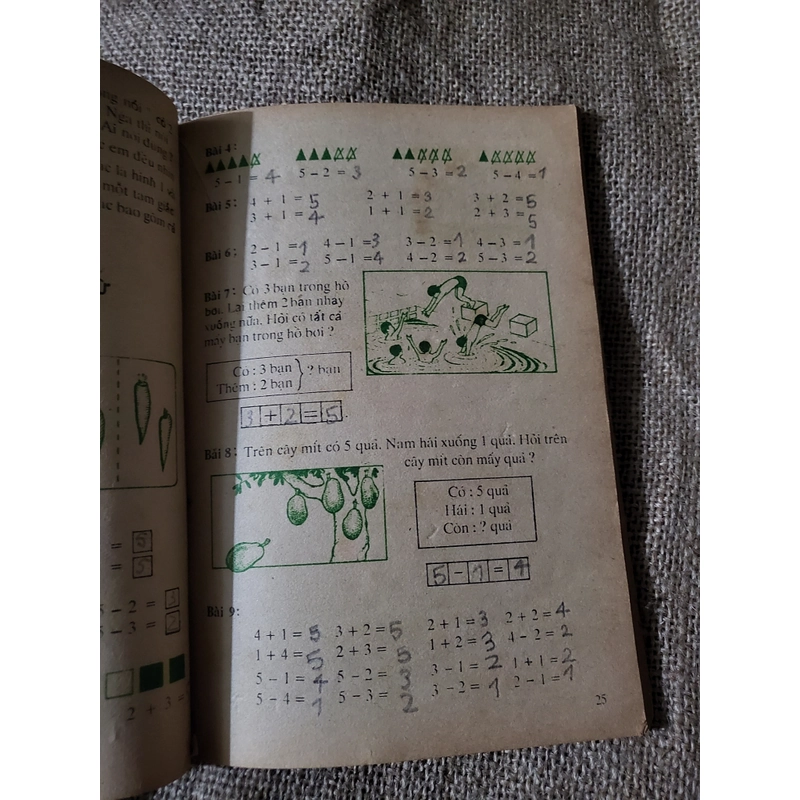 Nga thì nói
Ai nói đúng ?
c em đều
một tam giác
ác bao gồm cả
= 5
= 5
5 – 2 = 3
5 – 3 = 2
2 + 3 =
Bài 4:
5 – 1 = 4 5 – 2 = 3 5 – 3 = 2 5 – 4 = 1
Bài 5: 4 + 1 = 5 2 + 1 = 3 3 + 2 = 5
3 + 1 = 4 1 + 1 = 2 2 + 3 = 5
Bài 6: 2 – 1 = 1 4 – 1 = 3 3 – 2 = 1 4 – 3 = 1
3 – 1 = 2 5 – 1 = 4 4 – 2 = 2 5 – 3 = 2
Bài 7: Có 3 bạn trong hồ
bơi. Lại thêm 2 bạn nhảy
xuống nữa. Hỏi có tất cả
mấy bạn trong hồ bơi ?
Có : 3 bạn
Thêm : 2 bạn } ? bạn
3 + 2 = 5
Bài 8: Trên cây mít có 5 quả. Nam hái xuống 1 quả. Hỏi trên
cây mít còn mấy quả ?
Có : 5 quả
Hái : 1 quả
Còn : ? quả
5 – 1 = 4
Bài 9:
4 + 1 = 5 3 + 2 = 5 2 + 1 = 3 2 + 2 = 4
1 + 4 = 5 2 + 3 = 5 1 + 2 = 3 4 – 2 = 2
5 – 1 = 4 5 – 2 = 3 3 – 1 = 2 1 + 1 = 2
5 – 4 = 1 5 – 3 = 2 3 – 2 = 1 2 – 1 = 1
25